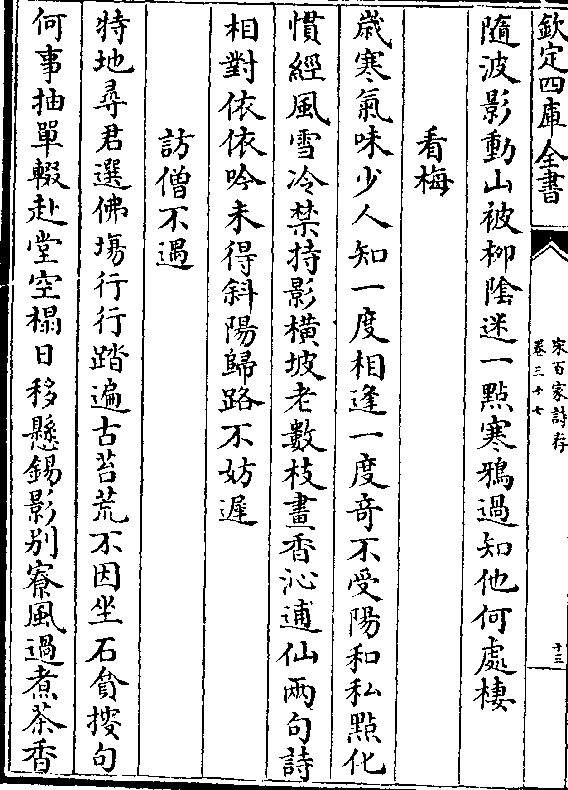 欽定四庫全書
宋百家詩存
卷三十七
十三
隨波影動山被柳陰迷一點寒鴉過知他何處棲
看梅
歳寒氣味少人知一度相逢一度奇不受陽和私點化
慣經風雪冷禁持影橫坡老數枝畫香沁逋仙兩句詩
相對依依吟未得斜陽歸路不妨遲
訪僧不遇
特地尋君選佛塲行行踏遍古苔荒不因坐石貪搜句
何事抽單輟赴堂空榻日移懸錫影别寮風過煮茶香